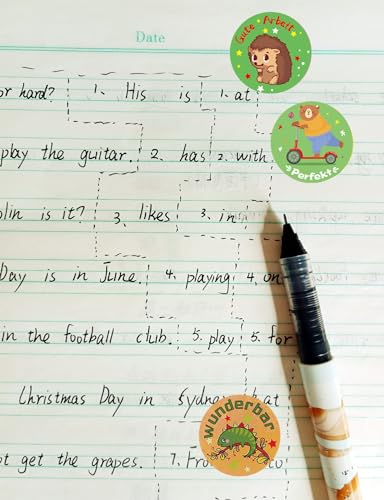 Date
Gute Arbeit
or hard? 1. His is 1. at
Perfekt
play the guitar. 2. has 2. with
lin is it? 3. likes 3. in
Day is in June. 4. playing 4. on
in the football club. 5. play 5. for
Christmas Day in Sydney at
Wunderbar
ot get the grapes. 7.